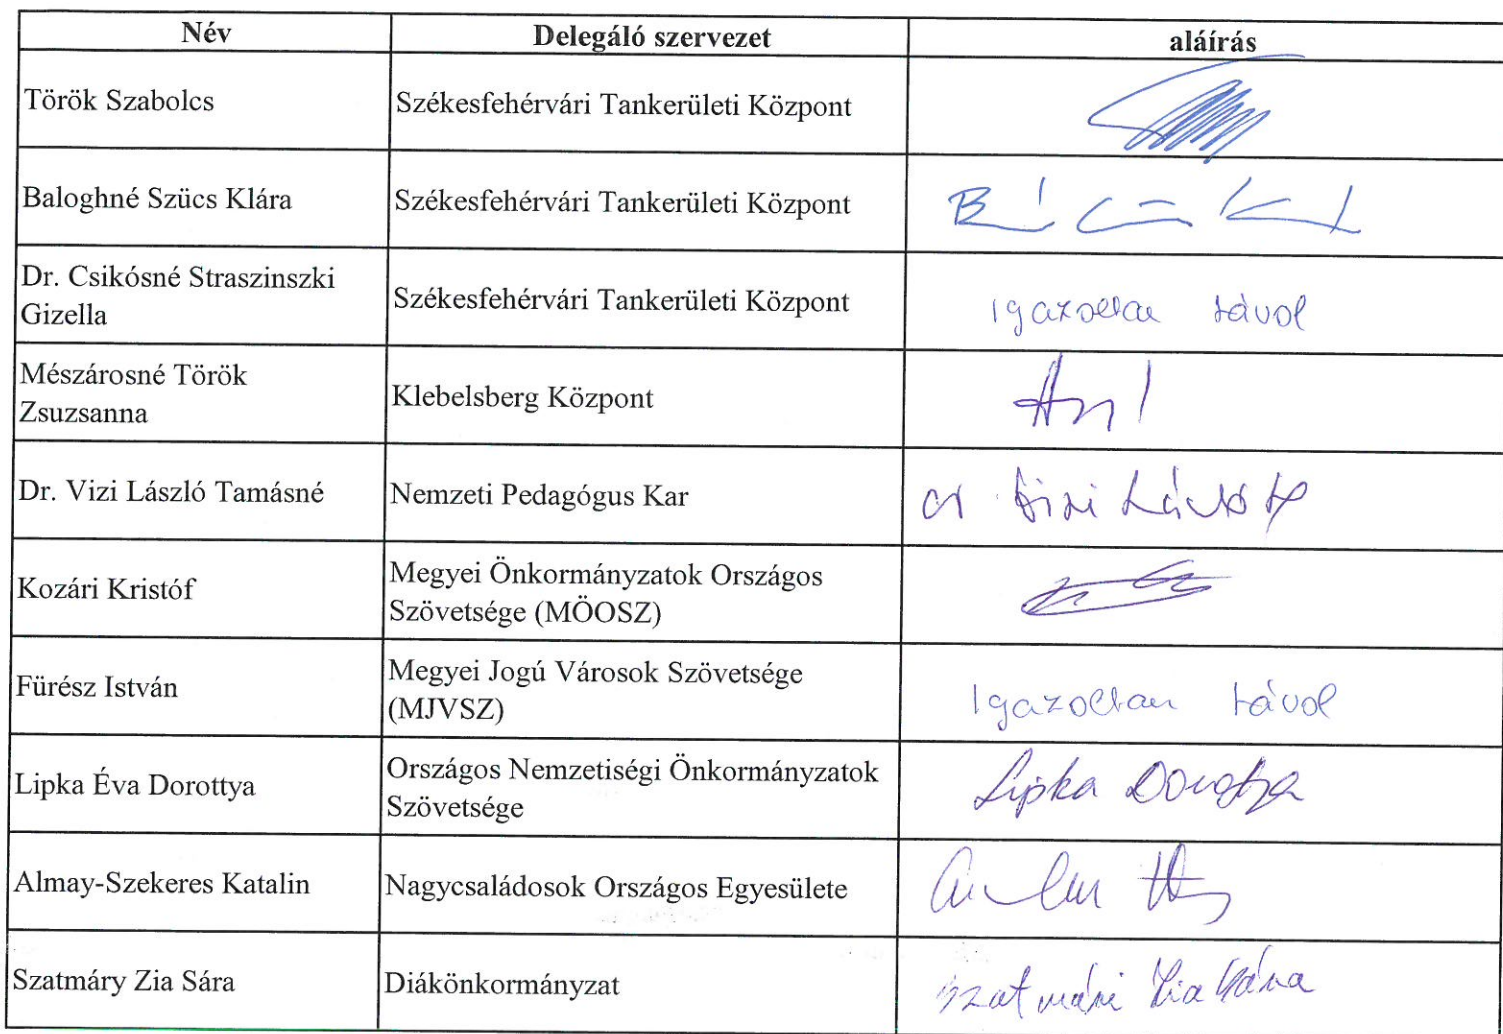 Név Delegáló szervezet aláírás
Török Szabolcs Székesfehérvári Tankerületi Központ
Baloghné Szücs Klára Székesfehérvári Tankerületi Központ
Dr. Csikósné Straszinszki
Gizella
Székesfehérvári Tankerületi Központ
Igazoltan távol
Mészárosné Török
Zsuzsanna
Klebelsberg Központ
Dr. Vizi László Tamásné Nemzeti Pedagógus Kar
Kozári Kristóf
Megyei Önkormányzatok Országos
Szövetsége (MÖOSZ)
Fürész István
Megyei Jogú Városok Szövetsége
(MJVSZ)
Igazoltan távol
Lipka Éva Dorottya
Országos Nemzetiségi Önkormányzatok
Szövetsége
Lipka Dorottya
Almay-Szekeres Katalin Nagycsaládosok Országos Egyesülete
Szatmáry Zia Sára Diákönkormányzat Szatmári Zia Sára